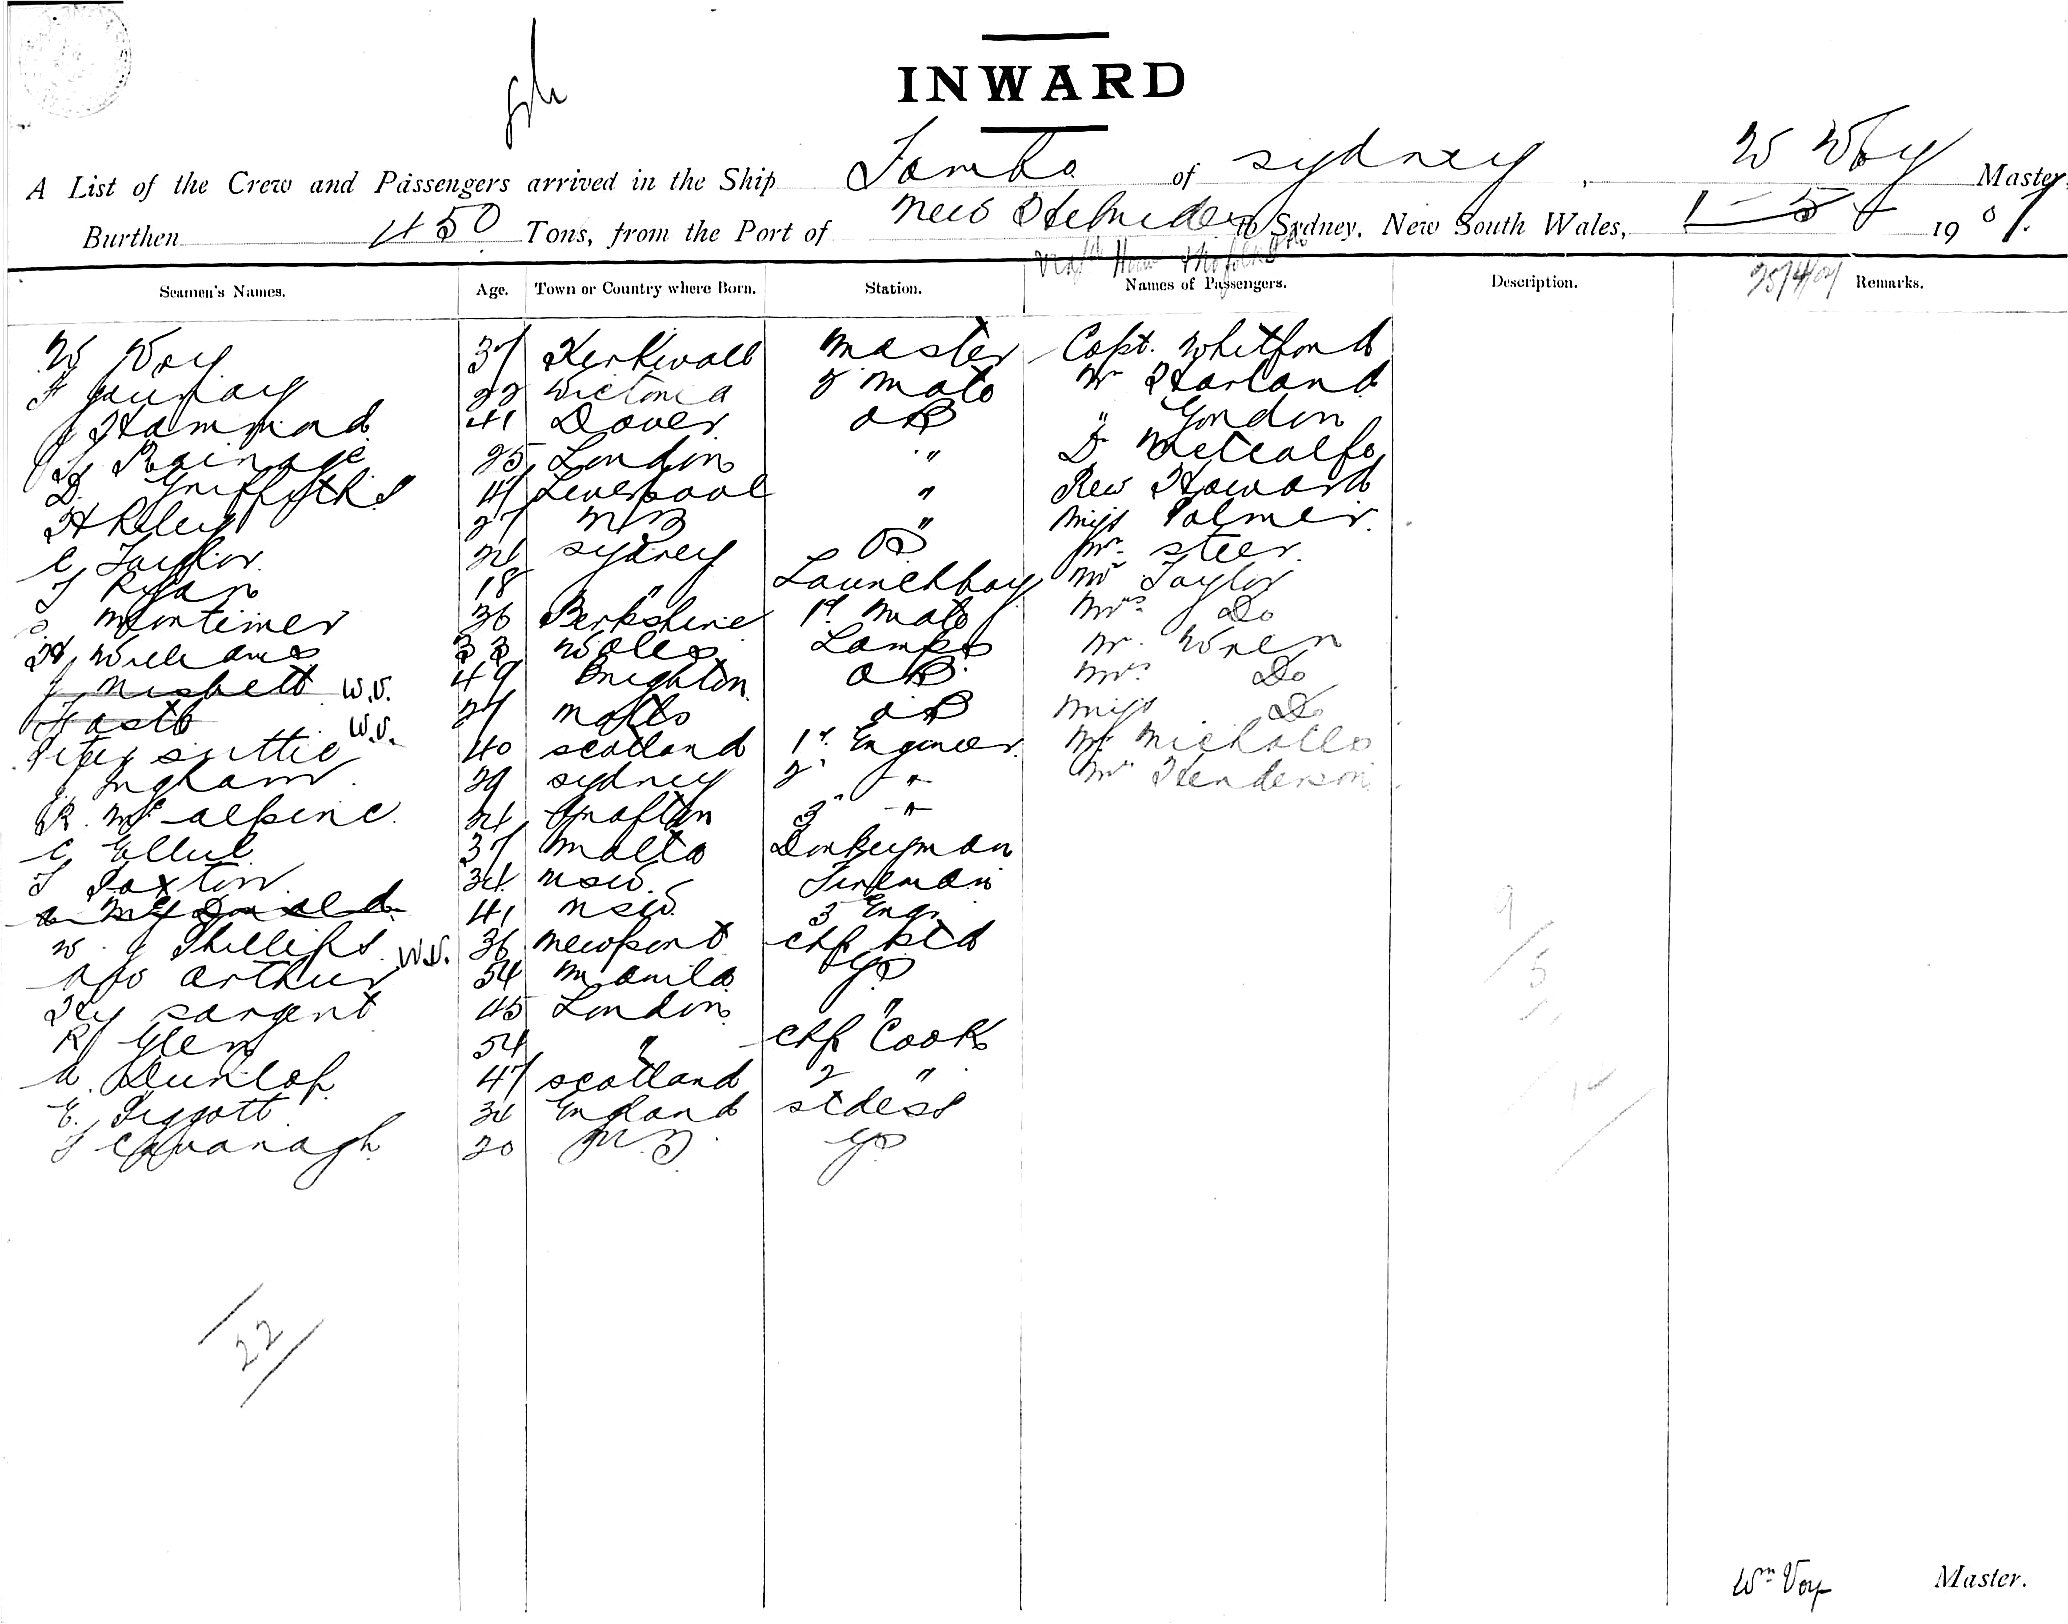 INWARD
A List of the Crew and Passengers arrived in the Ship Tambo of Sydney, W Voy Master,
Burthen 450 Tons, from the Port of New Hebrides to Sydney, New South Wales, 1-5- 1907.
Seamen's Names. Age. Town or Country where Born. Station. Names of Passengers. Description. 25/4/07 Remarks.
W Voy 37 Kerkwall Master Capt. Whitford
F 22 Victoria 2 Mate Mr Harland
J Hammond 41 Dover AB " Gordon
25 London " Dr Metcalfe
D. Griffiths 41 Liverpool " Rev Howard
H Riley 27 NZ " Miss Palmer.
C Taylor. 26 Sydney OS Mr. Steer.
T Ryan 18 " Launchboy Mr Taylor
S Mortimer 36 Berkshire 1st Mate Mrs Do
H Williams 33 Wales Lamps Mr. Wren
J Nisbett W.V. 49 Brighton AB Mrs Do
W.V. 27 Malta AB Miss Do
Peter Suttie 40 Scotland 1st Engineer Mr Nicholls
J. Ingham. 29 Sydney 2 " Mr Henderson
R. McAlpine. 24 Grafton 3 "
C Ellul 37 Malta Donkeyman
T Paxton. 34 NSW. Fireman
A McDonald 41 NSW 3 Engr
W. J Phillips W.V. 36 Newport Chf Std
Arthur 54 Manila GS
Hy Sargent 45 London "
R Glen 54 " Chf Cook
A. Dunlop. 47 Scotland 2 "
E. Piggott 36 England Stdess
T Cavanagh 20 N.Z. GS
9
5
14
22
Wm Voy Master.